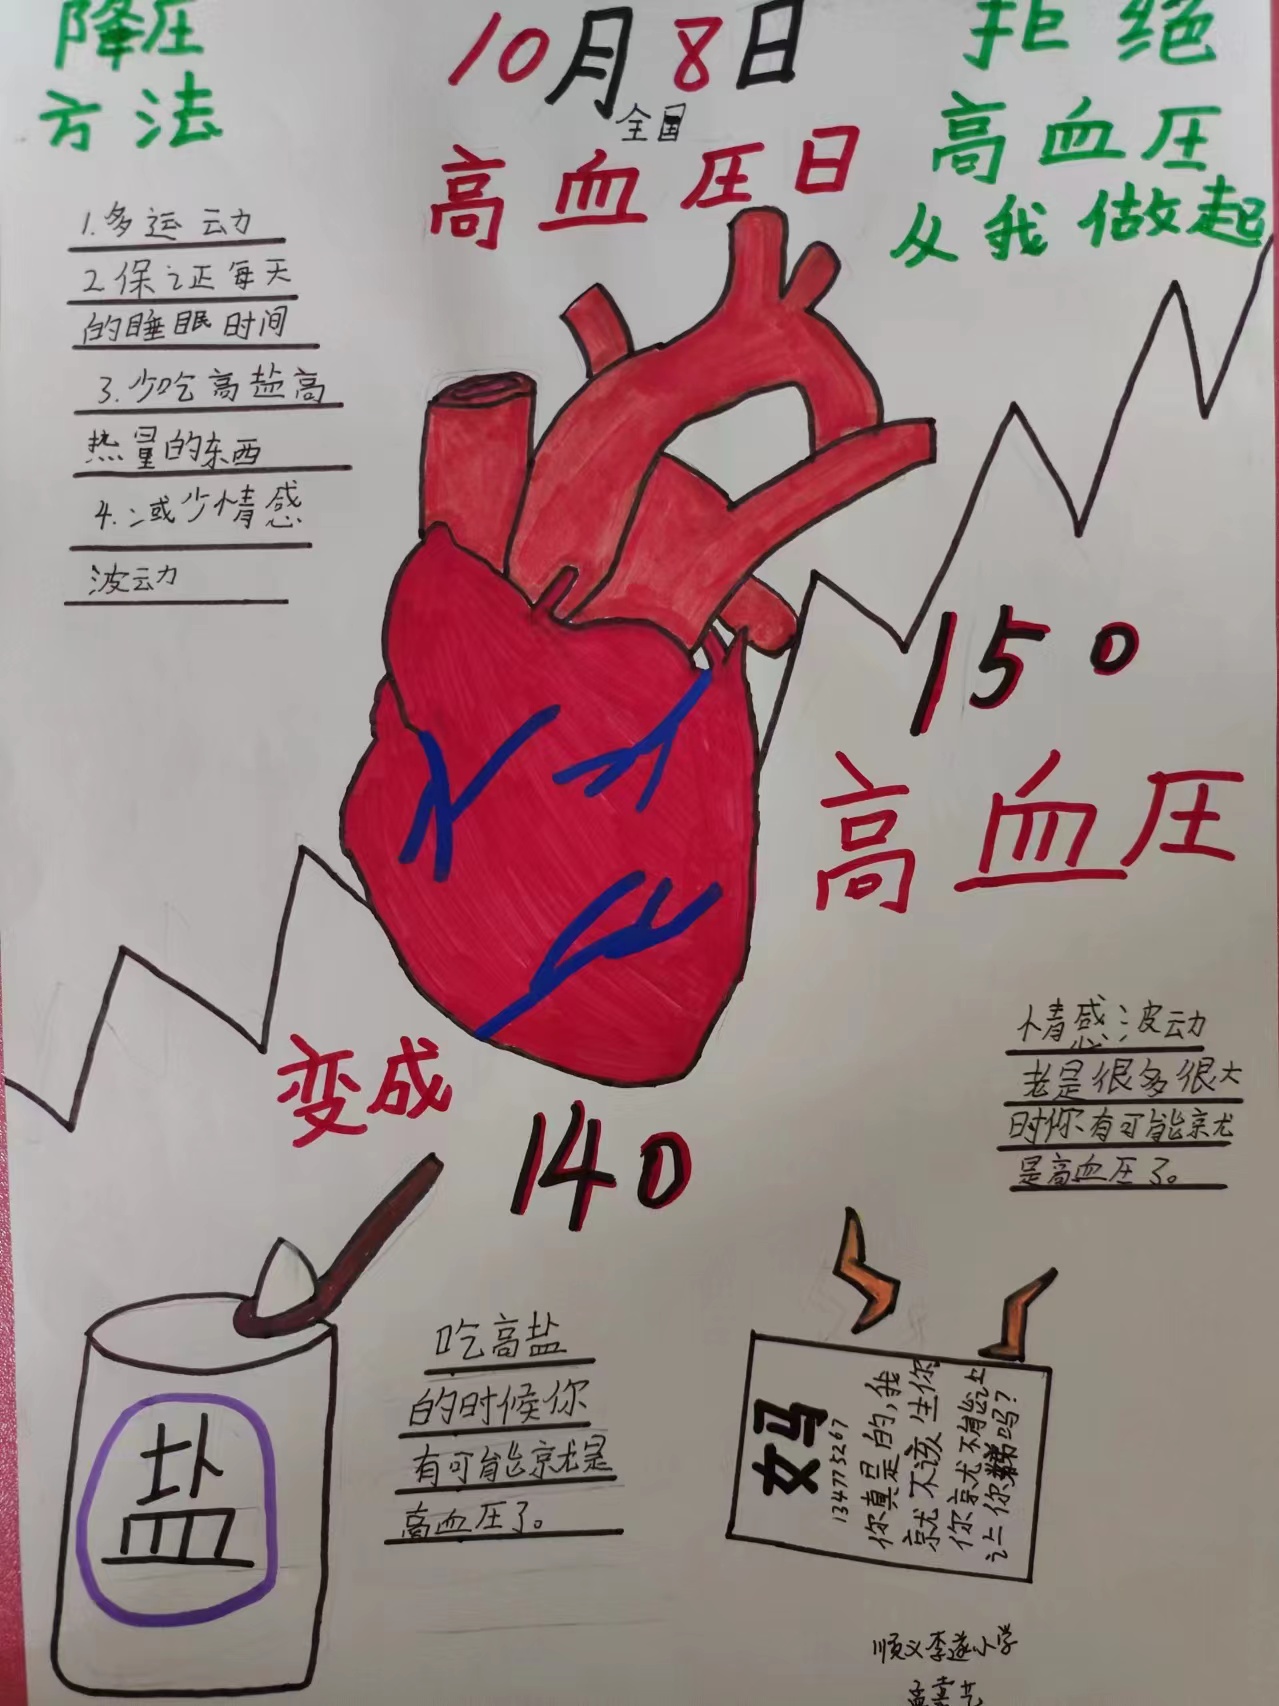 降压
方法
1.多运动
2.保证每天
的睡眠时间
3.少吃高盐高
热量的东西
4.减少情感
波动
10月8日
全国
高血压日
拒绝
高血压
从我做起
150
高血压
变成
140
情感波动
老是很多很大
时你有可能就
是高血压了。
盐
吃高盐
的时候你
有可能就是
高血压了。
妈
1347775267
你真是的,我
就不该生你
你就不能让
让你吗?
顺义李遂小学